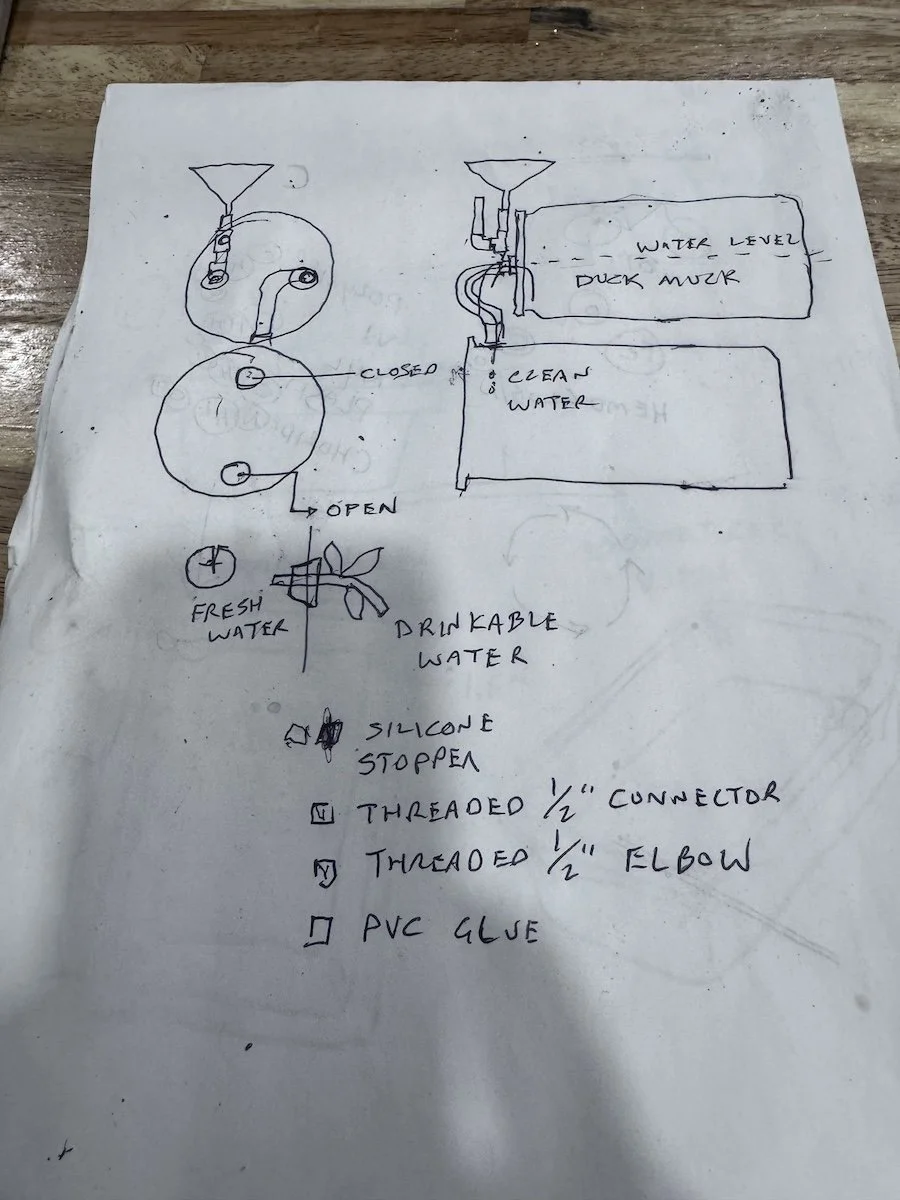 WATER LEVEL
DUCK MUCK
CLOSED
CLEAN
WATER
OPEN
FRESH
WATER
DRINKABLE
WATER
SILICONE
STOPPER
THREADED 1/2" CONNECTOR
THREADED 1/2" ELBOW
PVC GLUE